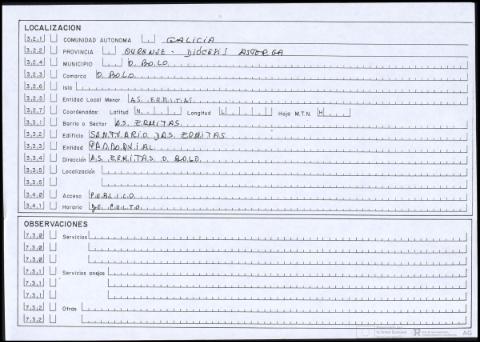 LOCALIZACION
3.2.1 COMUNIDAD AUTONOMA GALICIA
3.2.2 PROVINCIA OURENSE - DIÓCESIS ASTORGA
3.2.4 MUNICIPIO O BOLO
3.2.3 Comarca O BOLO
3.2.6 Isla
3.2.5 Entidad Local Menor AS ERMITAS
3.2.7 Coordenadas: Latitud N Longitud L Hoja M.T.N. H
3.3.1 Barrio o Sector AS ERMITAS
3.3.2 Edificio SANTUARIO DAS ERMITAS
3.3.3 Entidad PARROQUIAL
3.3.4 Dirección AS ERMITAS O BOLO
3.3.5 Localización
3.3.5
3.4.0 Acceso PUBLICO
3.4.1 Horario DE CULTO
OBSERVACIONES
7.3.0 Servicios
7.3.0
7.3.0
7.3.1 Servicios anejos
7.3.1
7.3.1
7.3.2 Otros
7.3.2
AG